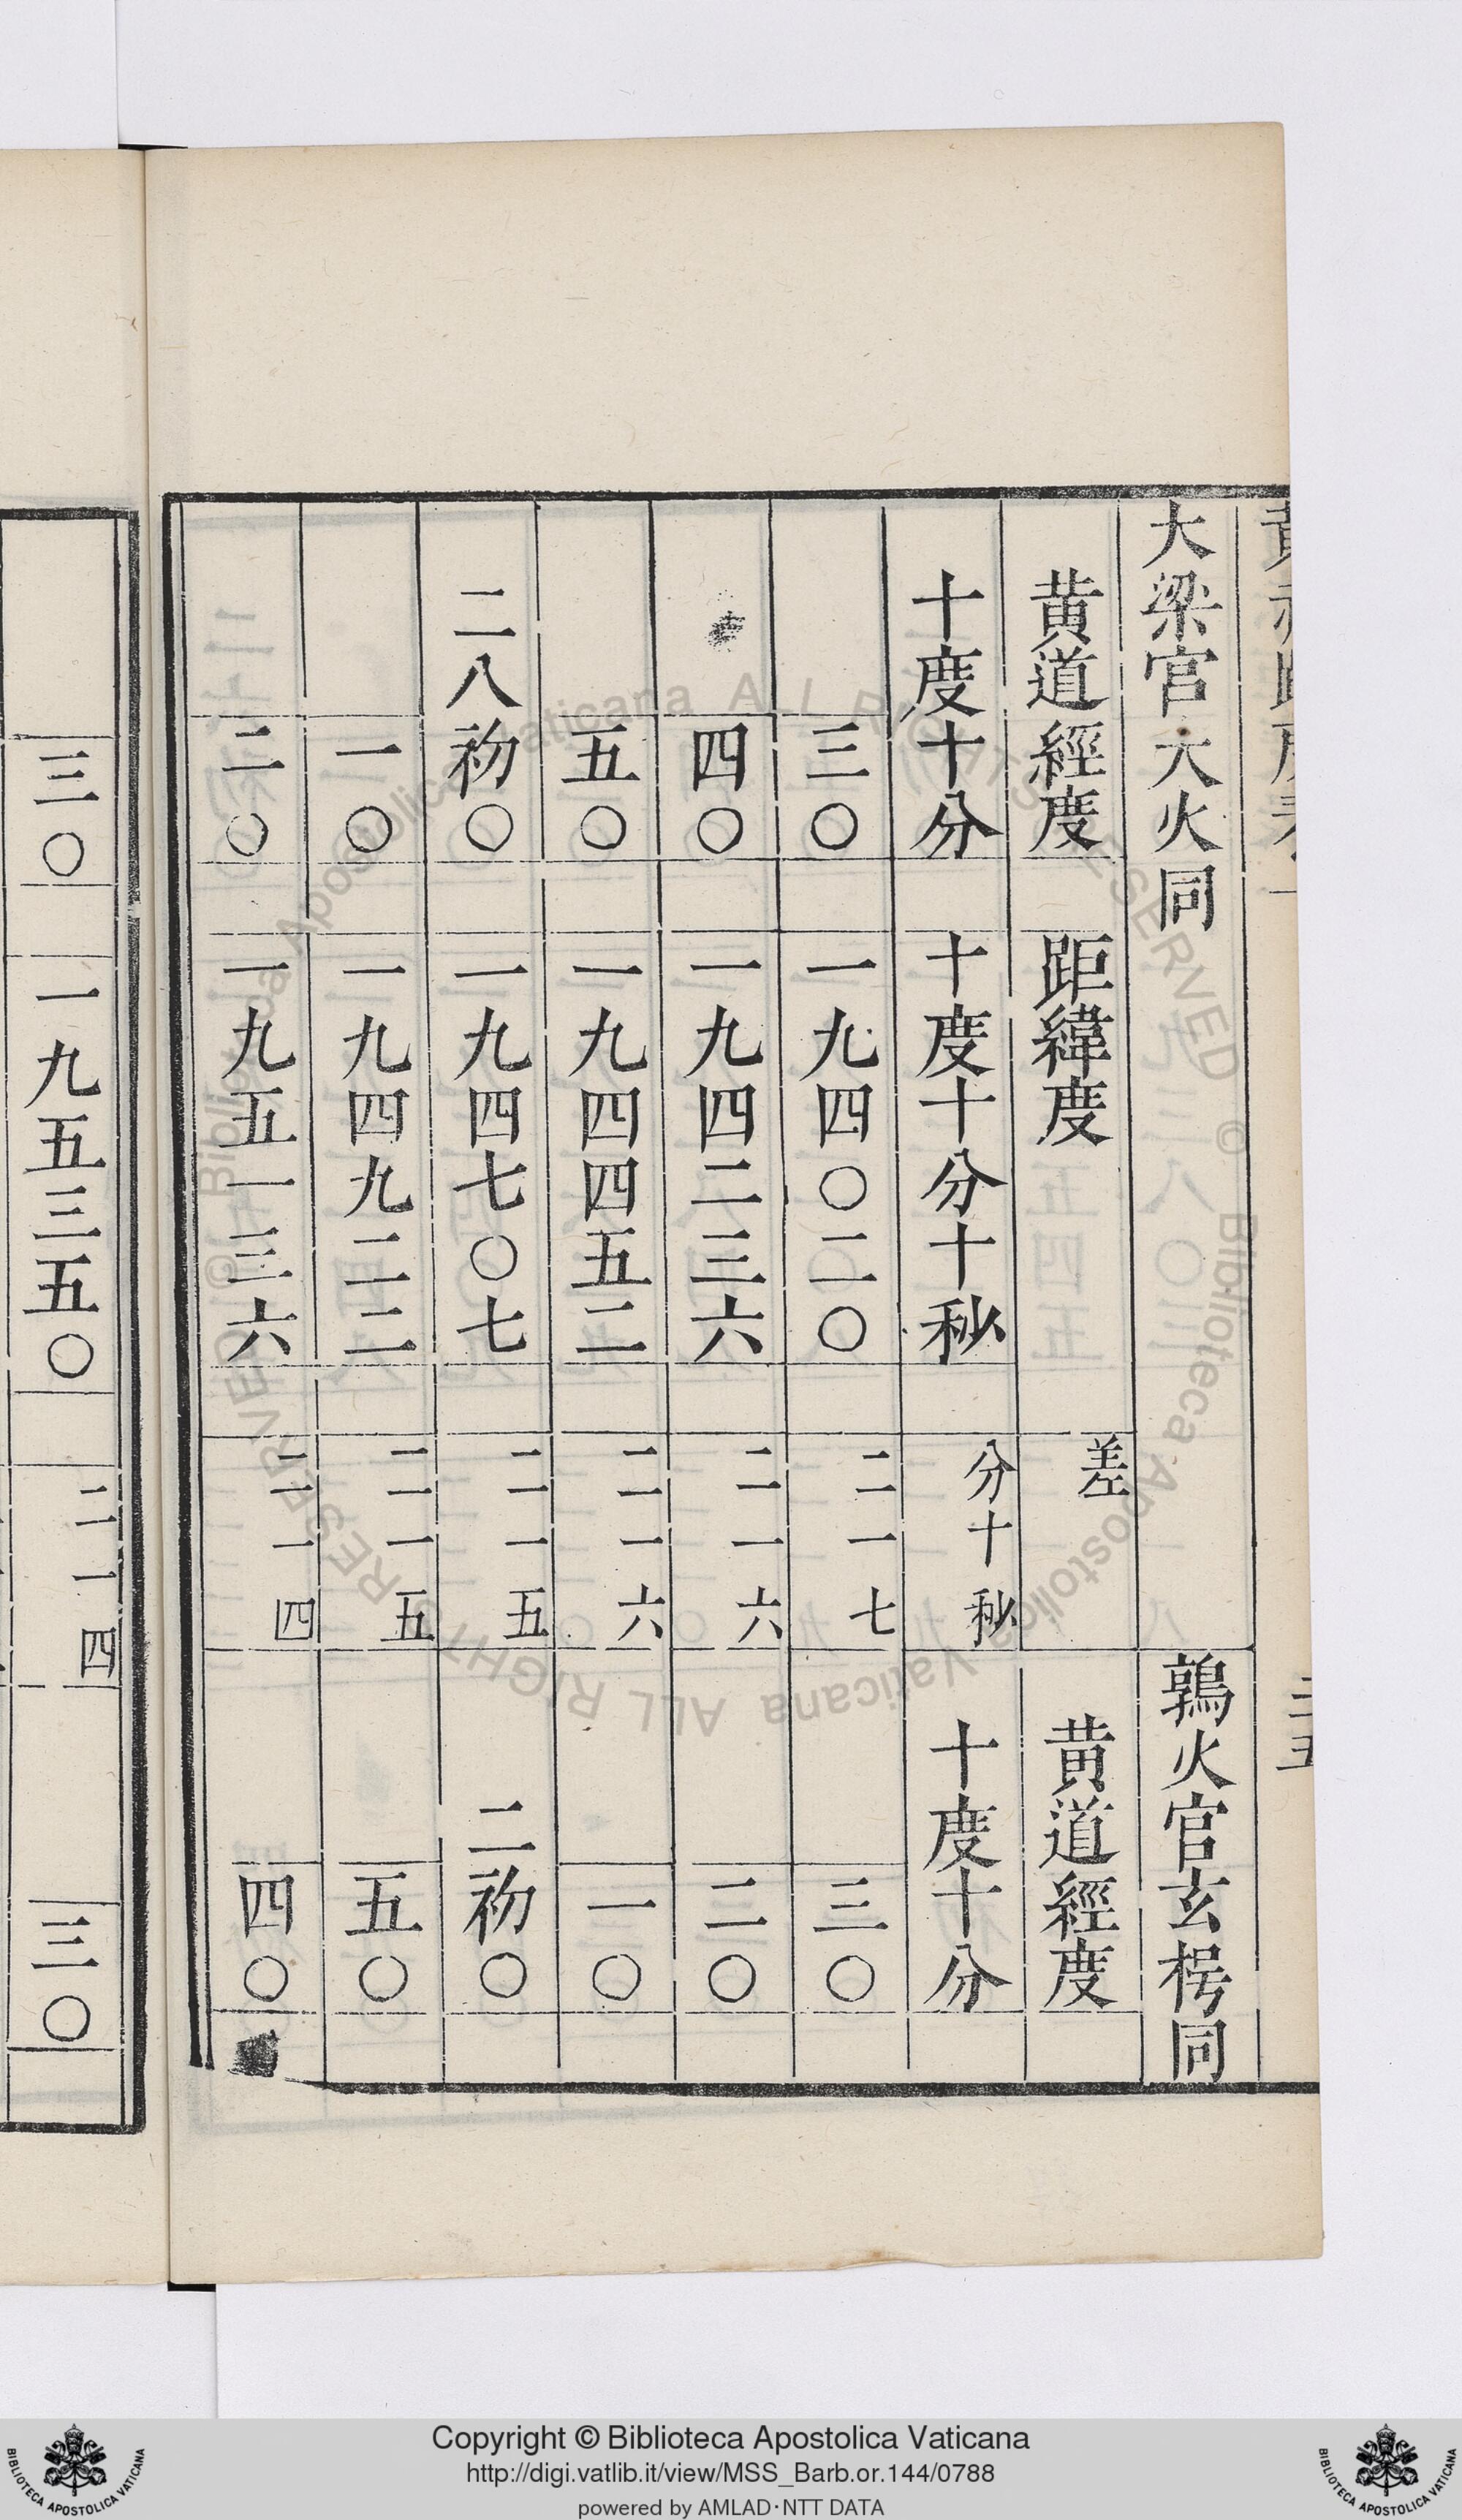 大梁官大火同 鶉火官玄枵同
黄道經度 距緯度 差 黄道經度
十度十分 十度十分十秒 分十秒 十度十分
三〇 一九四〇二〇 二一七 三〇
四〇 一九四二三六 二一六 二〇
五〇 一九四四五二 二一六 一〇
二八初〇 一九四七〇七 二一五 二初〇
一〇 一九四九二二 二一五 五〇
二〇 一九五一三六 二一四 四〇
三〇 一九五三五〇 二一四 三〇
© Biblioteca Apostolica Vaticana ALL RIGHTS RESERVED © Biblioteca Apostolica Vaticana ALL RIGHTS RESERVED
Copyright © Biblioteca Apostolica Vaticana
http://digi.vatlib.it/view/MSS_Barb.or.144/0788
powered by AMLAD·NTT DATA
BIBLIOTECA APOSTOLICA VATICANA
BIBLIOTECA APOSTOLICA VATICANA